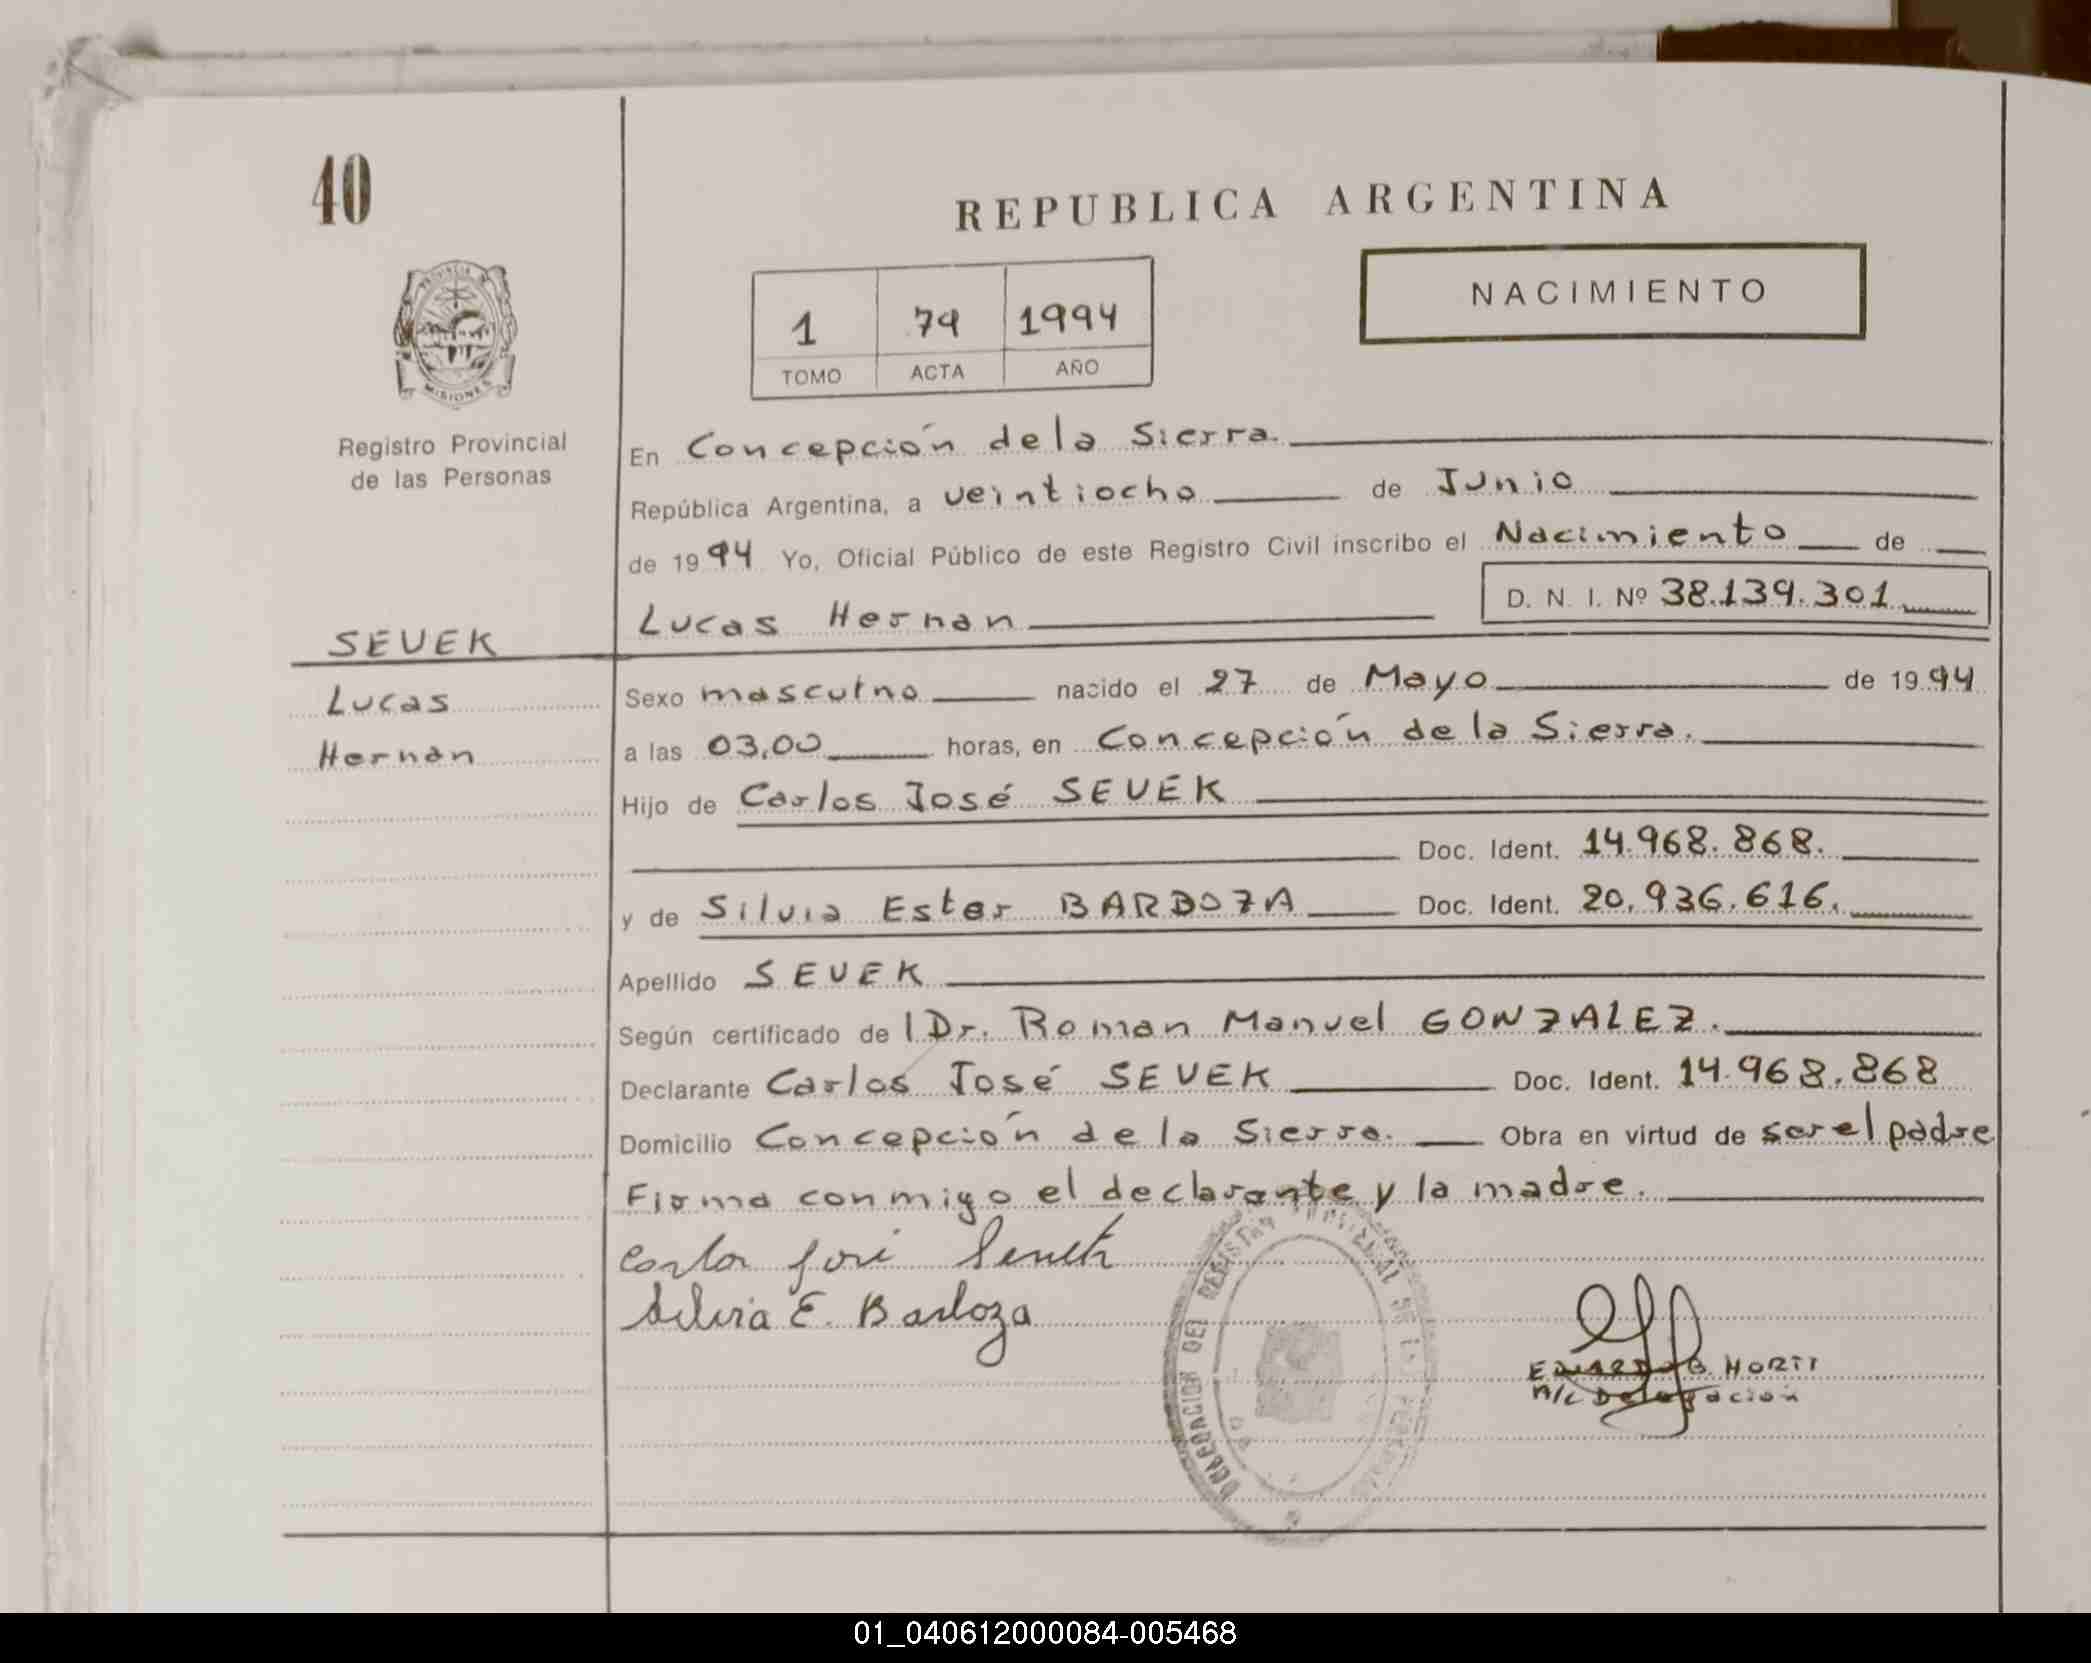 40
REPUBLICA ARGENTINA
NACIMIENTO
1 79 1994
TOMO ACTA AÑO
PROVINCIA DE
MISIONES
Registro Provincial
de las Personas
En Concepción de la Sierra.
República Argentina, a veintiocho de Junio
de 1994 Yo, Oficial Público de este Registro Civil inscribo el Nacimiento de
D. N. I. Nº 38.139.301
Lucas Hernan
SEVEK
Lucas
Hernan
Sexo masculno nacido el 27 de Mayo de 1994
a las 03,00 horas, en Concepción de la Sierra.
Hijo de Carlos José SEVEK
Doc. Ident. 14.968.868.
y de Silvia Ester BARBOZA Doc. Ident. 20.936.616.
Apellido SEVEK
Según certificado de l Dr. Roman Manuel GONZALEZ.
Declarante Carlos José SEVEK Doc. Ident. 14.968.868
Domicilio Concepción de la Sierra. Obra en virtud de ser el padre
Firma conmigo el declarante y la madre.
Carlos José Sevek
Silvia E. Barboza
DELEGACION DEL REGISTRO PROVINCIAL DE LAS PERSONAS
EDUARDO B. HORTT
A/C Delegacion
01_040612000084-005468